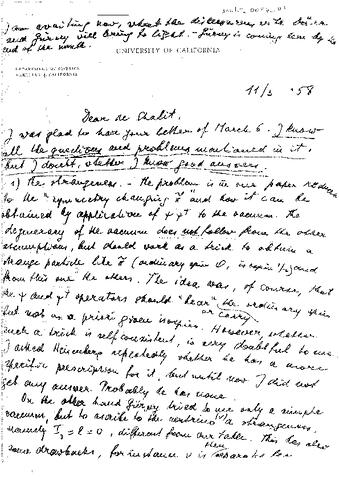 I am awaiting now, what the discussions with
and Gürsey will bring to light. - Gürsey is coming here by the
end of the month.
UNIVERSITY OF CALIFORNIA
DEPARTMENT OF PHYSICS
BERKELEY 4, CALIFORNIA
11/3 '58
Dear de Shalit,
I was glad to have your letter of March 6. I know
all the questions and problems mentioned in it,
but I doubt, whether I know good answers.
1) the strangeness. - the problem is in our paper
to the "symmetry changing" and how it can be
obtained by application of ψ ψ† to the vacuum. The
degeneracy of the vacuum does not follow from the other
assumptions, but should work as a trick to obtain a
strange particle like (ordinary spin 0, isospin ½) and
from this one the others. The idea was, of course, that
the ψ and ψ† operators should "bear" the ordinary spin
or carry
but not an a priori given isospin. However, whether
such a trick is selfconsistent, is very doubtful to me.
I asked Heisenberg repeatedly whether he has a more
specific prescription for it, but until now I did not
get any answer. Probably he has none.
On the other hand Gürsey tried to use only a simple
vacuum, but to ascribe to the neutrino a strangeness,
namely I₃ = l = 0, different from our table. This has also
some drawbacks, for instance ν is
then